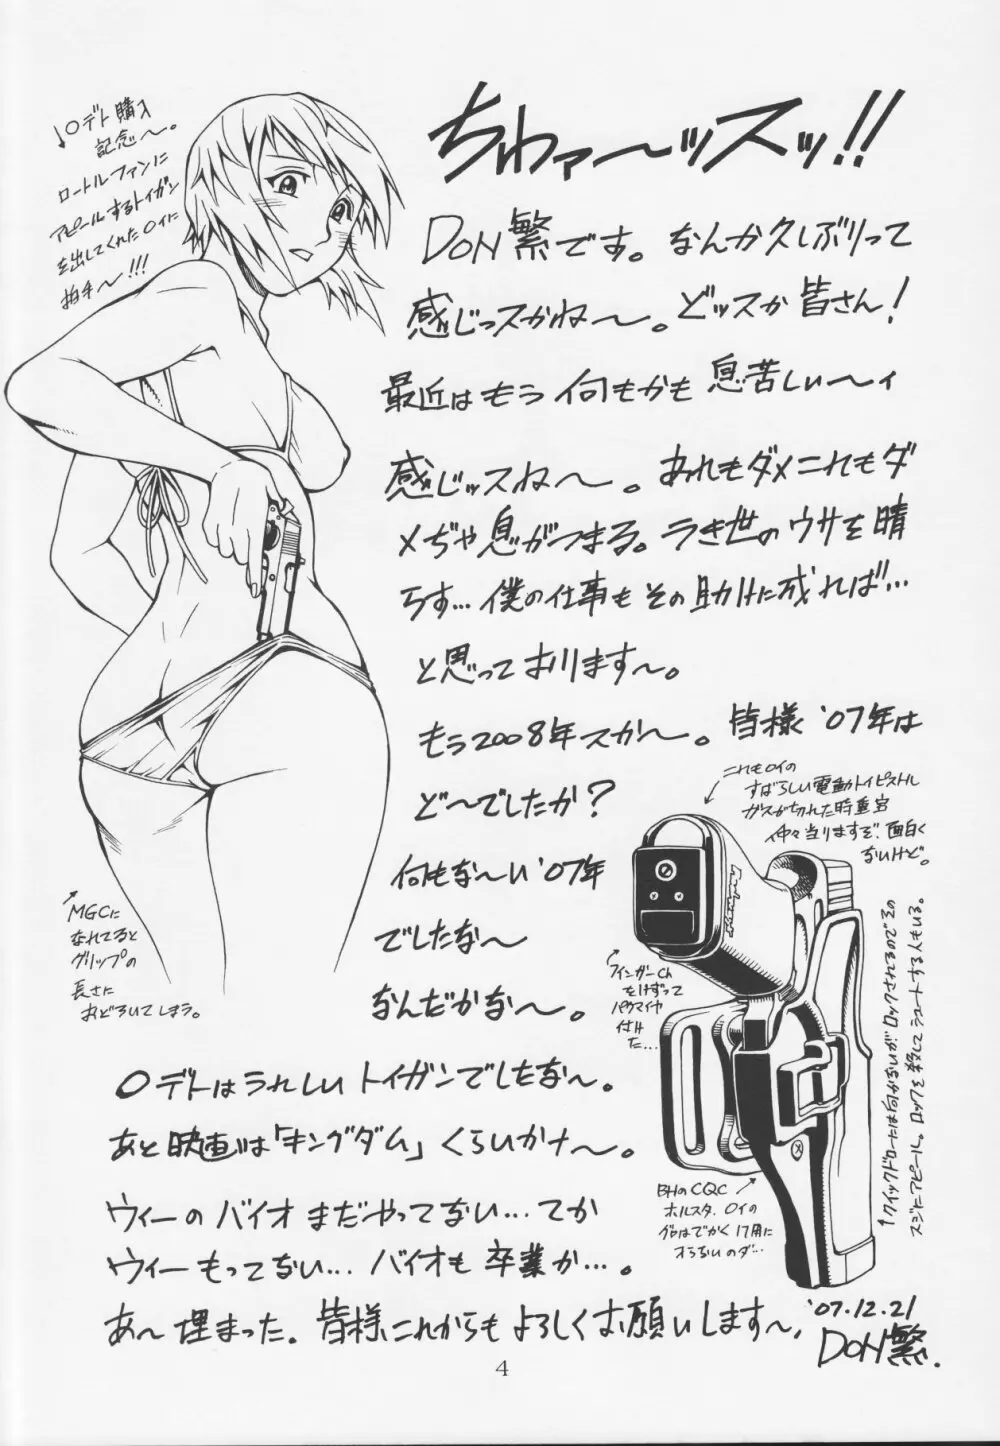 ちわァ〜ッスッ!!
DON繁です。なんか久しぶりって
感じっスかね〜。どッスか皆さん!
最近はもう何もかも息苦しい〜ィ
感じッスね〜。あれもダメこれもダ
メぢゃ息がつまる。うき世のウサを晴
らす…僕の仕事もその助けに成れば…
と思っております〜。
もう2008年スか〜。皆様'07年は
ど〜でしたか?
何もな〜い'07年
でしたな〜
なんだかな〜。
〇デトはうれしいトイガンでしたな〜。
あと映画は「キングダム」くらいかナ〜。
ウィーのバイオまだやってない…てか
ウィーもってない…バイオも卒業か…。
あ〜埋まった。皆様これからもよろしくお願いします〜。
'07.12.21
DON繁.
↓〇デト購入
記念〜。
ロートルファンに
アピールするトイガン
を出してくれた〇イに
拍手〜!!!
↗
MGCに
なれてると
グリップの
長さに
おどろいてしまう。
これも〇イの
すばらしい電動トイピストル
ガスが切れた時重宝
仲々当りますぞ、面白く
ないけど。
フィンガーCh
をけずって
パクマイヤ
付けた…
BHのCQC
ホルスタ、〇イの
グロはでかく17用に
オらないのダ…
↑クイックドローには向かないがロックされるのでその
スジにアピール。ロックを殺してシュートする人もいる。
4